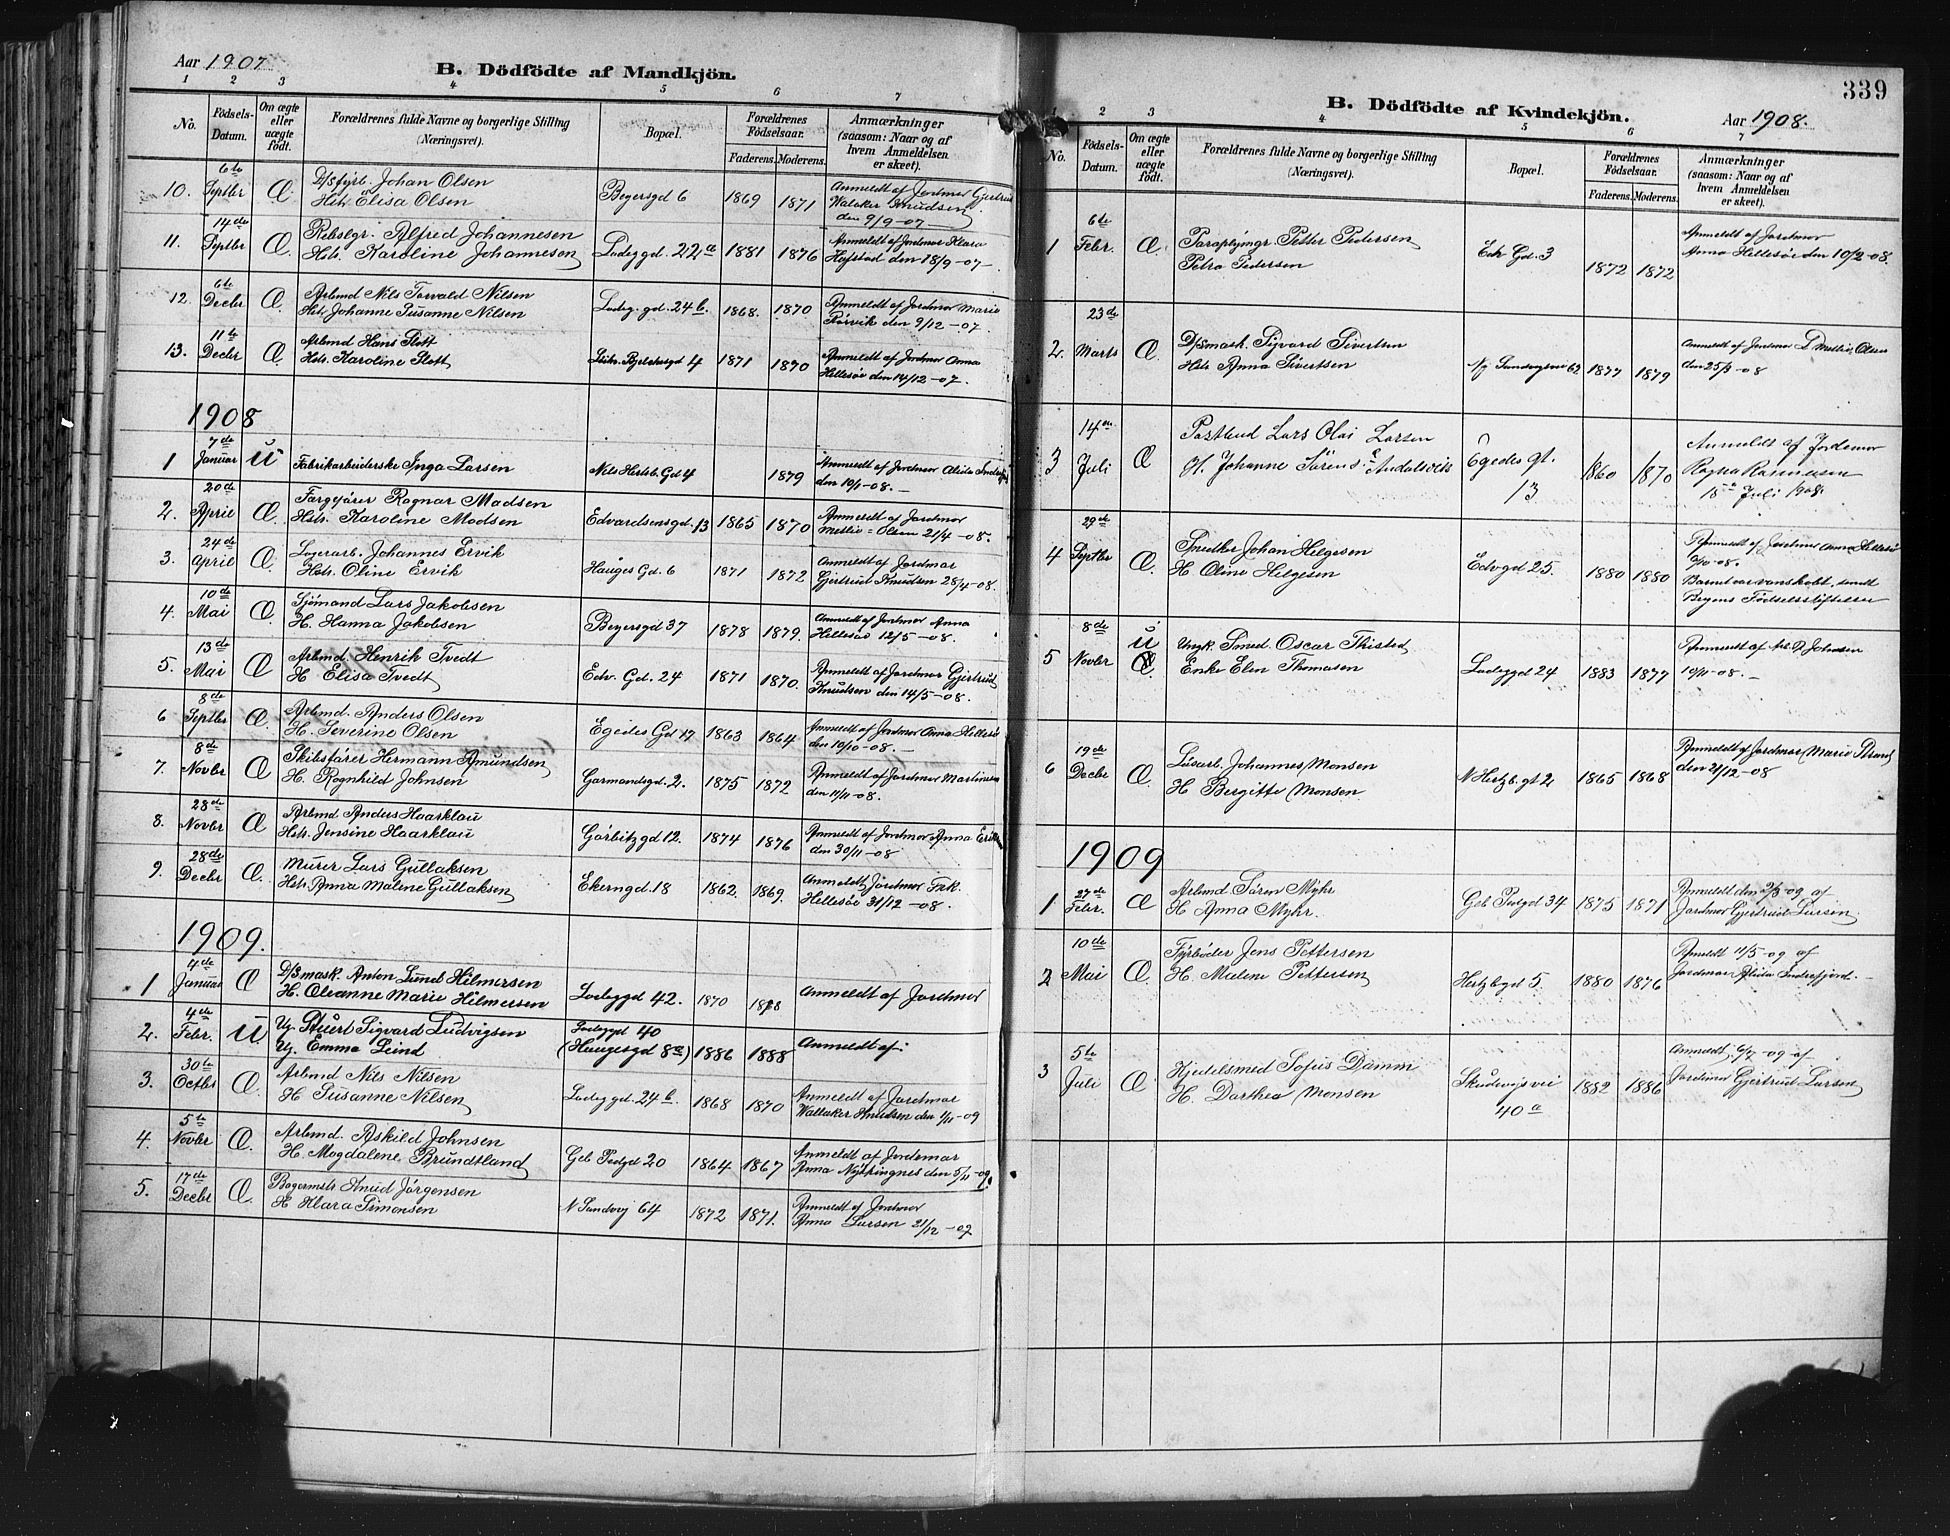 Aar 1907
B. Dödfödte af Mandkjön.
1 2 3 4 5 6 7
No.
Födsels-Datum.
Om ægte eller uægte födt.
Forældrenes fulde Navne og borgerlige Stilling (Næringsvei).
Bopæl.
Forældrenes Födselsaar.
Faderens. Moderens.
Anmærkninger (saasom: Naar og af hvem Anmeldelsen er skeet).
10. 6te Septbr Æ D/Sfyrb. Johan Olsen Beyersgd 6 1869 1871 Anmeldt af Jordmor Gjertrud
Hstr Elisa Olsen Wataker Knudsen den 9/9-07
11. 14de Septbr Æ Rebslgr. Alfred Johannesen Ladeggd. 22a 1881 1876 Anmeldt af Jordmor Klara
Hstr. Karoline Johannesen Hofstad den 18/9-07
12. 6te Decbr Æ Arbmd Nils Torvald Nilsen Ladeg.gd. 24 b. 1868. 1870 Anmeldt af Jordmor Marie
Hstr Johanne Susanne Nilsen Rörvik den 9/12-07.
13. 11te Decbr Æ Arbmd Hans Slott 4 1871 1870 Anmeldt af Jordmor Anna
Hstr. Karoline Slott Hellesöe den 14/12-07.
1908
1 7de Januar U Fabrikarbeiderske Inga Larsen Nils Hertzb. Gd 4 1879 Anmeldt af Jordmor Alida
den 10/1-08.
2. 20de April Æ Fargefører Ragnar Madsen Edvardsensgd. 13 1865 1870 Anmeldt af Jordmor
Hstr. Karoline Madsen Meslie-Olsen 21/4-08.
3. 24de April Æ Lagerarb. Johannes Ervik Hauges Gd. 6 1871 1872 Anmeldt af Jordmor
Hstr. Oline Ervik Gjertrud Knudsen 28/4-08.
4. 10de Mai Æ Sjømand Lars Jakobsen Beyersgd 37 1878 1879. Anmeldt af Jordmor Anna
H. Hanna Jakobsen Hellesöe 12/5-08.
5. 13de Mai Æ Arbmd. Henrik Tvedt Edv. Gd. 24 1871 1870. Anmeldt af Jordmor Gjertrud
H Elisa Tvedt Knudsen den 14/5-08
6 8de Septbr Æ Arbmd. Anders Olsen Egedes Gd 17 1863 1864 Anmeldt af Jordmor Anna Hellesöe
H. Severine Olsen den 10/10-08.
7. 8de Novbr Æ Skibsfører Hermann Amundsen Garmandsgd. 2. 1875 1872 Anmeldt af Jordmor Martinsen
H. Ragnhild Johnsen den 11/11-08.
8. 28de Novbr Æ Arbmd Anders Haarklau Görbitzgd 12. 1874 1876 Anmeldt af Jordmor Anna
Hstr. Jensine Haarklau den 30/11-08
9. 28de Decbr Æ. Murer Lars Gullaksen Ekerngd. 18 1862. 1869. Anmeldt Jordmor Frk.
Hstr. Anna Malene Gullaksen Hellesöe 31/12-08.
1909.
1 4de Januar Æ D/Smask. Anton Lund Hilmersen Ladeggd 42. 1870 1878 Anmeldt af Jordmor
H. Oleanne Marie Hilmersen
2. 4de Febr. U. Ug. Stuert Sigvard Ludvigsen Ladeggd 40 (Haugesgd 8a) 1886 1888 Anmeldt af:
Ug. Emma Lind
3. 30te Octbr Æ. Arbmd Nils Nilsen Ladeggd 24 b. 1868 1870 Anmeldt af Jordmor
H Susanne Nilsen Wallaker Knudsen den 1/11-09
4. 5te Novbr Æ. Arbmd. Askild Johnsen Geb Pedgd 20 1864 1867 Anmeldt af Jordemor
H. Magdalene Brundtland Anna Nykringnes den 5/11-09.
5. 17de Decbr Æ. Bagermstr Knud Jørgensen N Sandvig 64 1872 1871. Anmeldt af Jordmor
H Klara Simonsen Anna Larsen 21/12-09
339
B. Dödfödte af Kvindekjön.
Aar 1908.
1 2 3 4 5 6 7
No.
Födsels-Datum.
Om ægte eller uægte födt.
Forældrenes fulde Navne og borgerlige Stilling (Næringsvei).
Bopæl.
Forældrenes Födselsaar.
Faderens. Moderens.
Anmærkninger (saasom: Naar og af hvem Anmeldelsen er skeet).
1 6te Febr. Æ. Paraplymgr Petter Pedersen Edv Gd. 3 1872 1872 Anmeldt af Jordmor
Petra Pedersen Anna Hellesöe den 10/2-08.
2. 23de Marts Æ. D/Smask. Sigvard Sivertsen N/g Sandvigsvei 62 1877 1879 Anmeldt af Jordmor D Meslie Olsen
Hstr Anna Sivertsen den 25/3-08
3 14de Juli Æ Postbud Lars Olai Larsen Egedes gt. 13 1860 1870 Anmeldt af Jordemor
H. Johanne Sørens Andalsvik Ragna Rasmussen 15de Juli 1908.
4 29de Septbr Æ. Snedker Johan Helgesen Edv gd 25. 1880 1880 Anmeldt af Jordmor Anna Hellesöe
H. Oline Helgesen 2/10-08.
Barnet var vanskabt, sendt
Bergens Födselsstiftelse
5 8de Novbr U Ungk. Smed Oscar Thisted Ladeggd 24 1883 1877 Anmeldt af Jordmor P. Johnsen
Enke Elen Thomasen 10/11-08.
6 19de Decbr Æ. Lüsarb. Johannes Monsen N Hertzb.gt 2 1865 1868 Anmeldt af Jordmor Marie Strand
H Bergitte Monsen. den 21/12-08
1909
1 27de Febr. Æ Arbmd Sören Myhr Geb Pedgd 34 1875 1871 Anmeldt den 2/3-09 af
H Anna Myhr. Jordmor Gjertrud Larsen
2 10de Mai Æ. Fyrbøder Jens Pettersen Hertzbgd 5. 1880 1876 Anmeldt 11/5-09 af
H. Malene Pettersen Jordmor Alida Indrefjord.
3 5te Juli Æ Kjedelsmed Sofus Damm Skudevigsvei 40 a 1882 1886 Anmeldt 6/7-09 af
H. Dorthea Monsen Jordmor Gjertrud Larsen